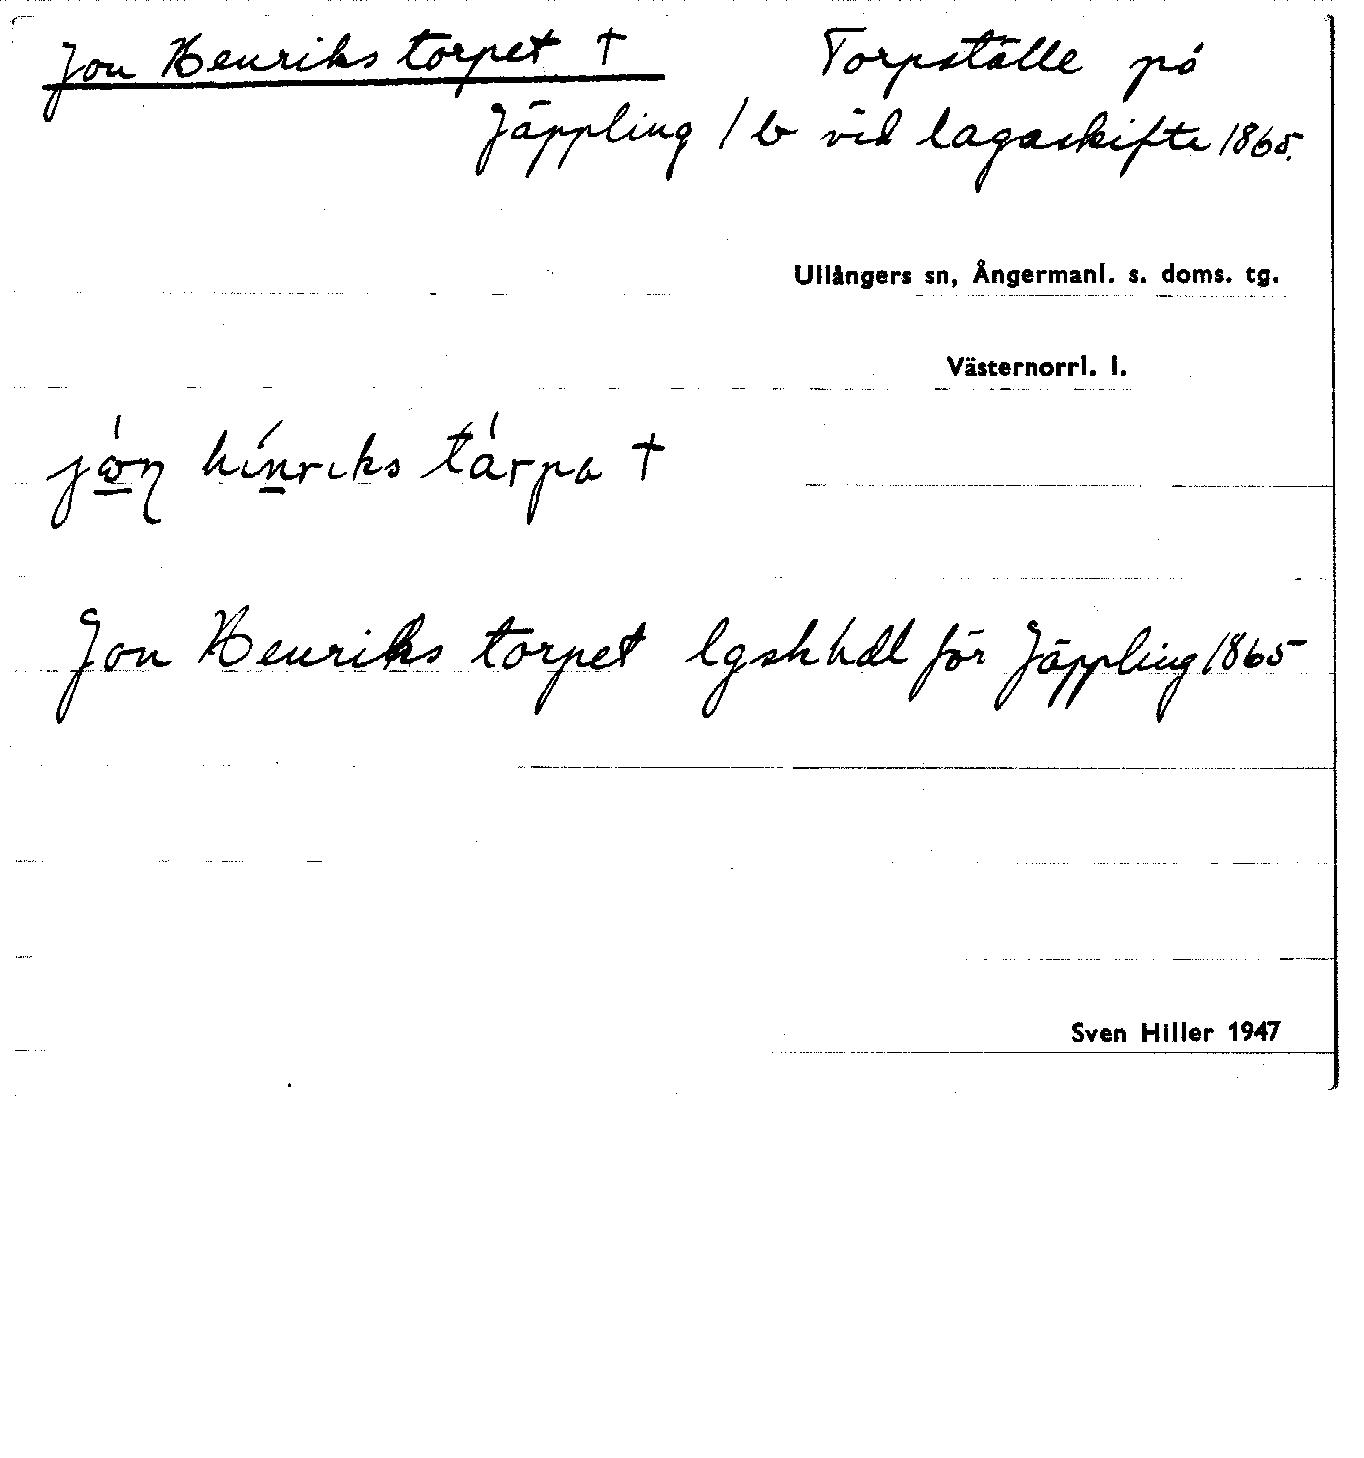 Jon Henriks torpet † Torpställe på
Jäppling 1b vid lagaskifte 1865.
Ullångers sn, Ångermanl. s. doms. tg.
Västernorrl. l.
hínriks tárpa †
Jon Henriks torpet lgskhdl för Jäppling 1865
Sven Hiller 1947